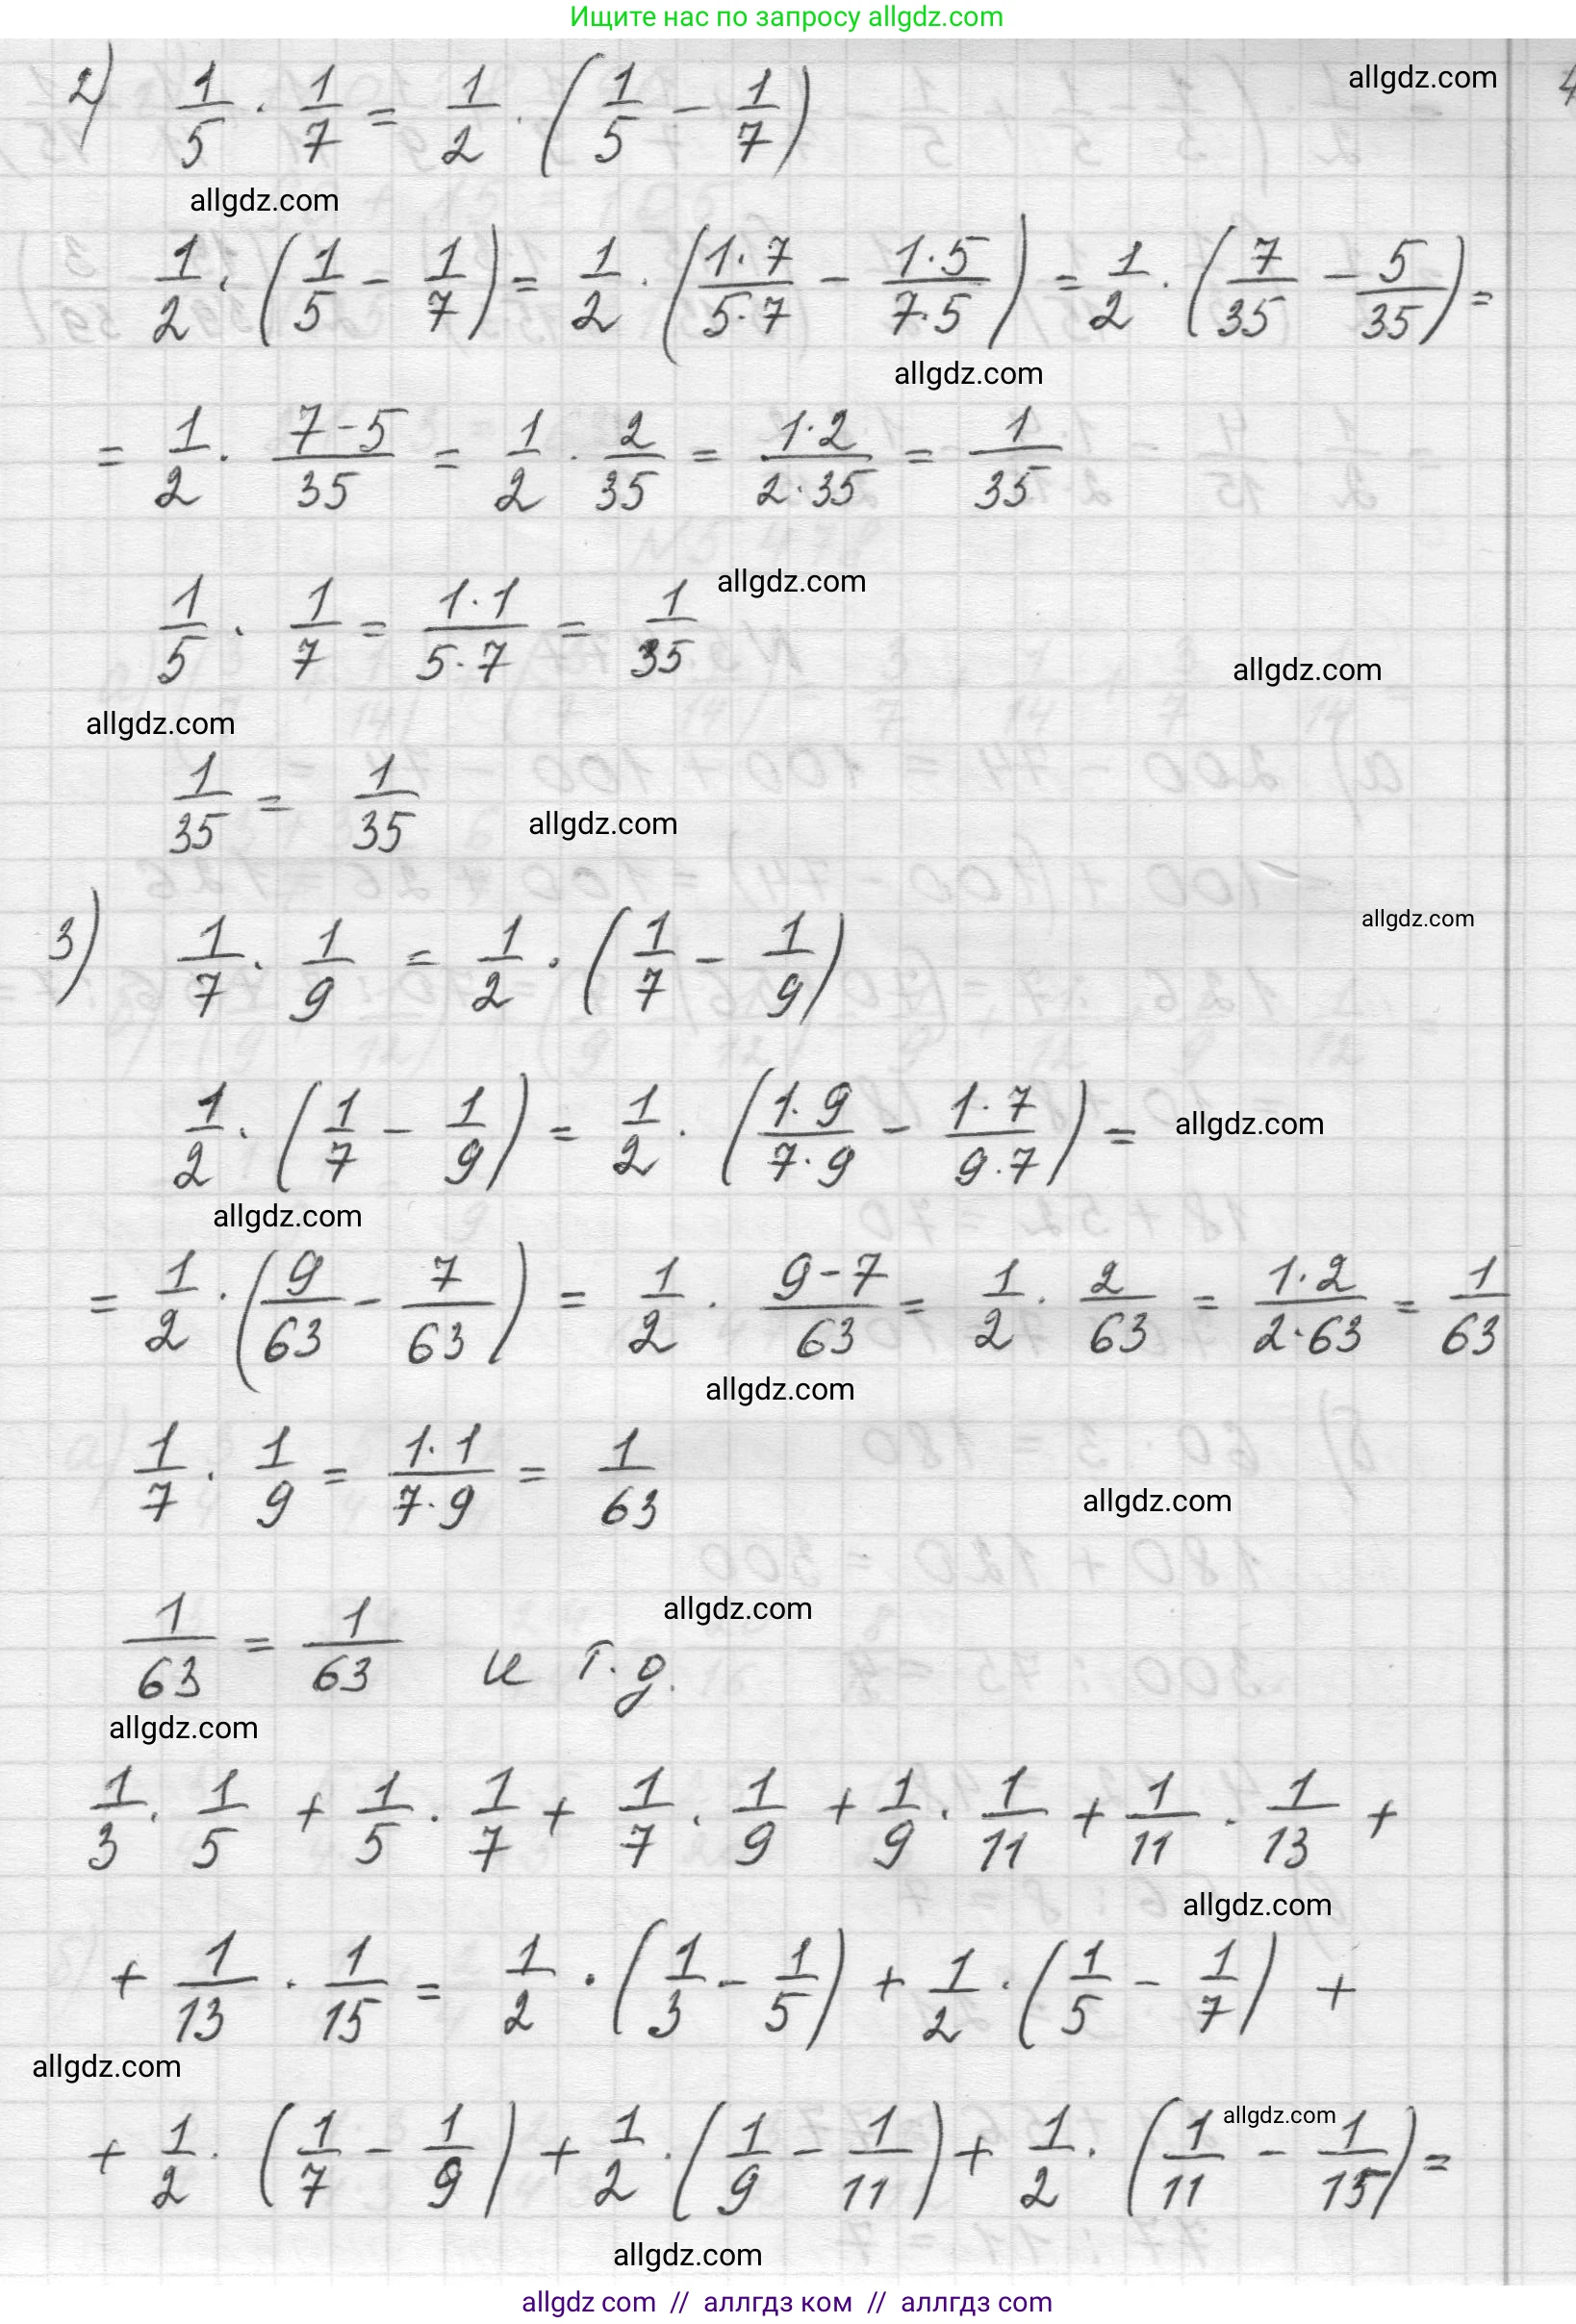 Ищите нас по запросу allgdz.com
allgdz.com
2) 1/5 · 1/7 = 1/2 · (1/5 - 1/7)
allgdz.com
1/2 · (1/5 - 1/7) = 1/2 · (1·7/5·7 - 1·5/7·5) = 1/2 · (7/35 - 5/35) =
allgdz.com
= 1/2 · 7-5/35 = 1/2 · 2/35 = 1·2/2·35 = 1/35
allgdz.com
1/5 · 1/7 = 1·1/5·7 = 1/35
allgdz.com
allgdz.com
1/35 = 1/35
allgdz.com
allgdz.com
3) 1/7 · 1/9 = 1/2 · (1/7 - 1/9)
1/2 · (1/7 - 1/9) = 1/2 · (1·9/7·9 - 1·7/9·7) =
allgdz.com
allgdz.com
= 1/2 · (9/63 - 7/63) = 1/2 · 9-7/63 = 1/2 · 2/63 = 1·2/2·63 = 1/63
allgdz.com
1/7 · 1/9 = 1·1/7·9 = 1/63
allgdz.com
allgdz.com
1/63 = 1/63 и т.д.
allgdz.com
1/3 · 1/5 + 1/5 · 1/7 + 1/7 · 1/9 + 1/9 · 1/11 + 1/11 · 1/13 +
allgdz.com
+ 1/13 · 1/15 = 1/2 · (1/3 - 1/5) + 1/2 · (1/5 - 1/7) +
allgdz.com
allgdz.com
+ 1/2 · (1/7 - 1/9) + 1/2 · (1/9 - 1/11) + 1/2 · (1/11 - 1/15) =
allgdz.com
allgdz.com // аллгдз ком // аллгдз com